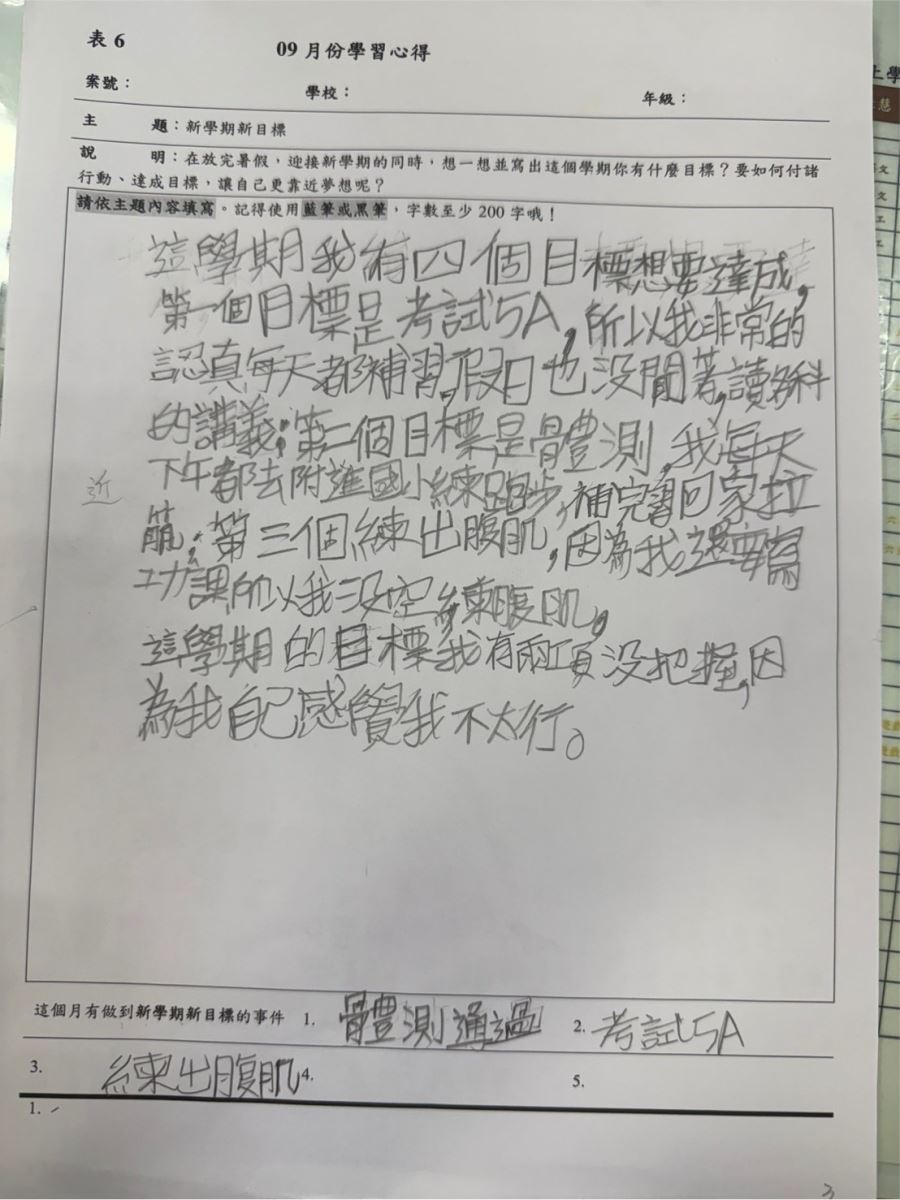 表 6
09 月份學習心得
案號： 學校： 年級：
主 題：新學期新目標
說 明：在放完暑假，迎接新學期的同時，想一想並寫出這個學期你有什麼目標？要如何付諸
行動、達成目標，讓自己更靠近夢想呢？
請依主題內容填寫。記得使用藍筆或黑筆，字數至少 200 字哦！
這學期我有四個目標想要達成，
第一個目標是考試5A，所以我非常的
認真每天都補習，假日也沒閒著，讀各科
的講義；第二個目標是體測，我每天
下午都去附進國小練跑步，補完習回家拉
筋；第三個練出腹肌，因為我還要寫
功課所以我沒空練腹肌。
這學期的目標我有兩項沒把握，因
為我自己感覺我不太行。
近
這個月有做到新學期新目標的事件 1. 體測通過 2. 考試5A
3. 練出腹肌 4. 5.
1.
3